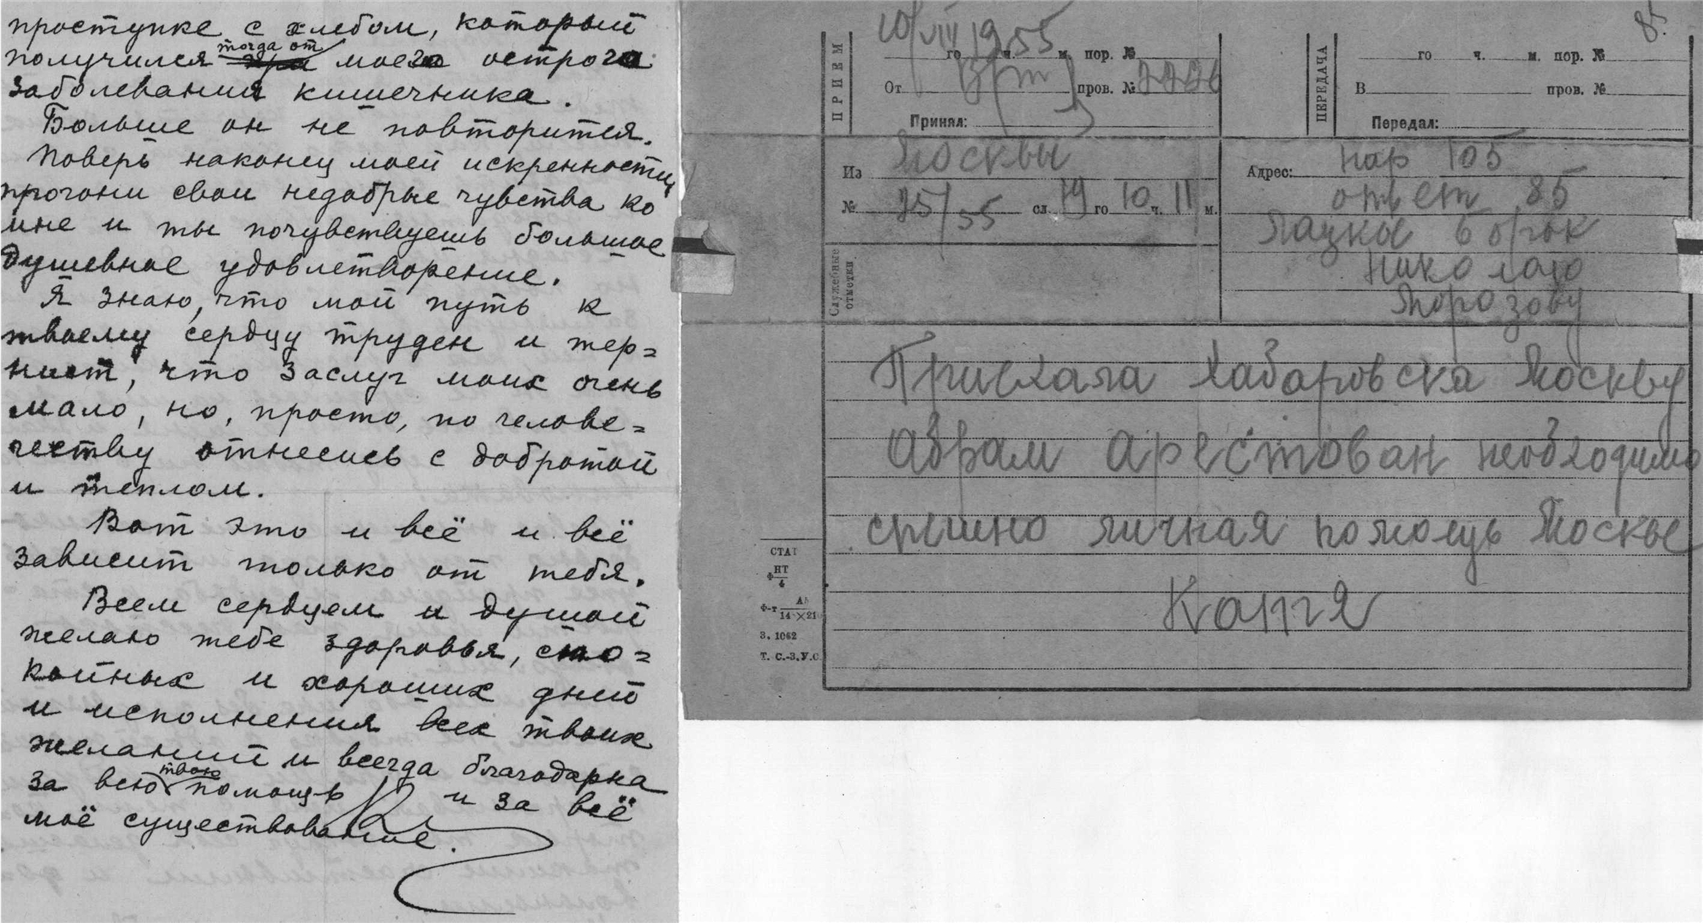 проступке с хлебом, который
получился тогда от моего острого
заболевания кишечника.
Больше он не повторится.
Поверь наконец моей искренности,
прогони свои недобрые чувства ко
мне и ты почувствуешь большое
душевное удовлетворение.
Я знаю, что мой путь к
твоему сердцу труден и тер=
нист, что заслуг моих очень
мало, но, просто, по челове=
честву отнесись с добротой
и теплом.
Вот это и всё и всё
зависит только от тебя.
Всем сердцем и душой
желаю тебе здоровья, спо=
койных и хороших дней
и исполнения всех твоих
желаний и всегда благодарна
за всю твою помощь и за всё
моё существование.
85
ПРИЕМ
10/VII 1955
го ч. м. пор. №
От пров. №
Принял:
ПЕРЕДАЧА
го ч. м. пор. №
В пров. №
Передал:
Из Москвы
№ 75/55 сл. 19 го 10 ч. 11 м.
Служебные отметки
Адрес: нар 105
ответ 85
Паужы Борок
Николаю
Морозову
Приехала Хабаровска Москву
Абрам арестован необходимо
срочно личная помощь Москве
Катя
СТАТ
НТ
4
Ф-т А
14×21
З. 1062
Т. С.-З.У.С.